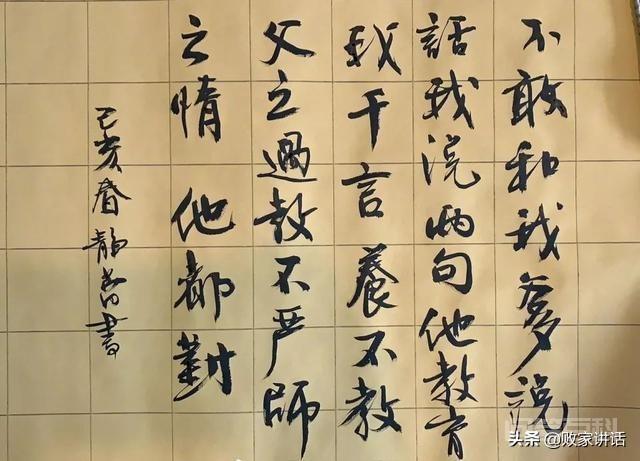 不敢和我爹说
話我说两句他教育
我千言養不教
父之過教不严師
之情 他都對
己亥春静斋書
头条 @败家讲话